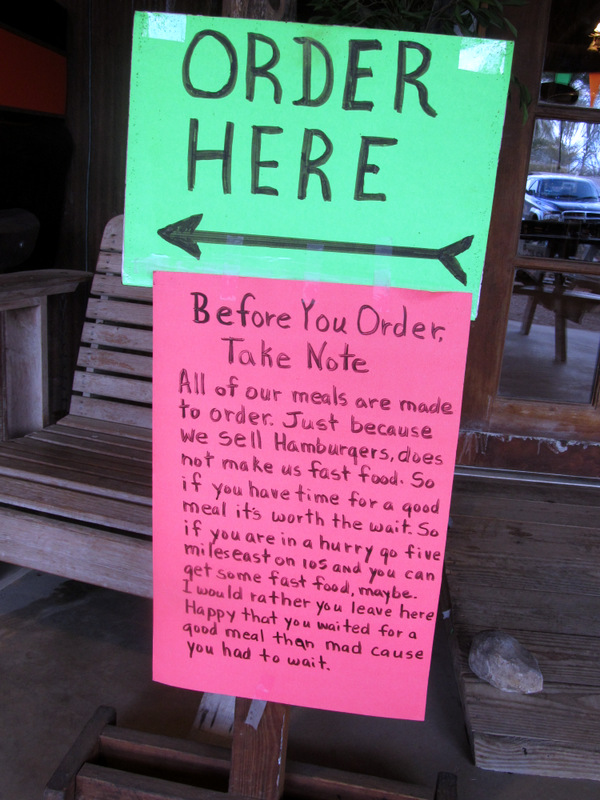 ORDER
HERE
Before You Order,
Take Note
All of our meals are made
to order. Just because
We sell Hamburgers, does
not make us fast food. So
if you have time for a good
meal it's worth the wait. So
if you are in a hurry go five
miles east on 105 and you can
get some fast food, maybe.
I would rather you leave here
Happy that you waited for a
good meal then mad cause
you had to wait.